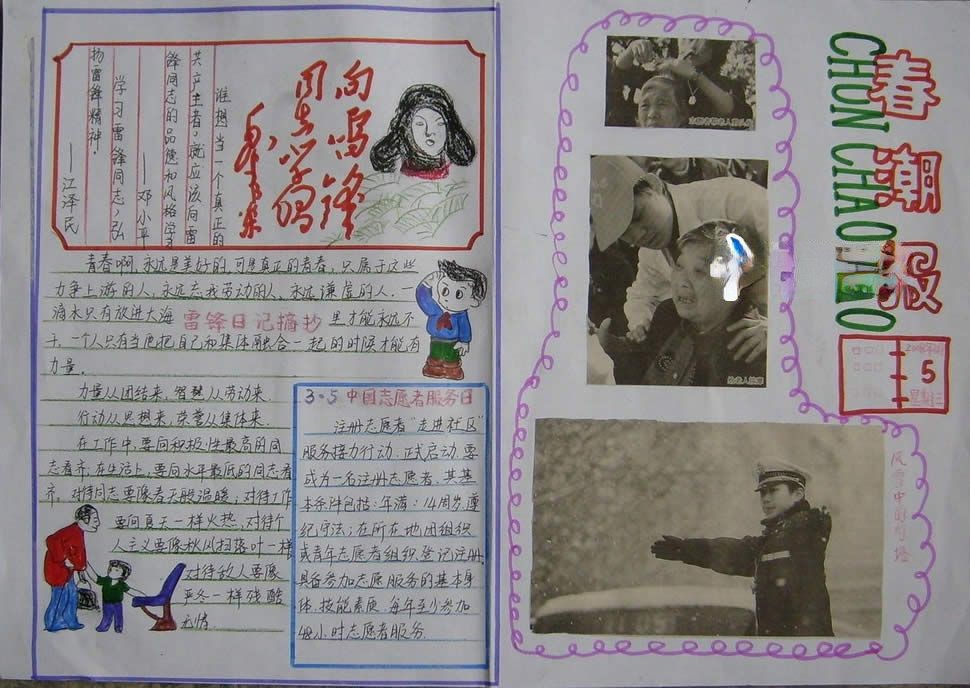 春潮报
CHUN CHAO BAO
5
星期三
志愿者帮老人剪头发
给老人按摩
风雪中的灯塔
向雷锋
同志学习
毛泽东
谁想当一个真正的
共产主者,就应该向雷
锋同志的品德和风格学习
——邓小平
学习雷锋同志,弘
扬雷锋精神.
——江泽民
青春啊,永远是美好的,可是真正的青春,只属于这些
力争上游的人,永远忘我劳动的人,永远谦虚的人.一
滴水只有放进大海 雷锋日记摘抄 里才能永远不
干,一个人只有当他把自己和集体融合一起的时候才能有
力量.
力量从团结来,智慧从劳动来,
行动从思想来,荣誉从集体来.
在工作中,要向积极性最高的同
志看齐,在生活上,要向水平最低的同志看
齐,对待同志要像春天般温暖,对待工作
要向夏天一样火热,对待个
人主义要像秋风扫落叶一样
对待敌人要像
严冬一样残酷
无情.
3-5 中国志愿者服务日
注册志愿者"走进社区"
服务接力行动,正式启动.要
成为一名注册志愿者,其基
本条件包括:年满:14周岁,遵
纪守法;在所在地团组织
或青年志愿者组织登记注册.
具备参加志愿服务的基本身
体,技能素质,每年至少参加
48小时志愿者服务.